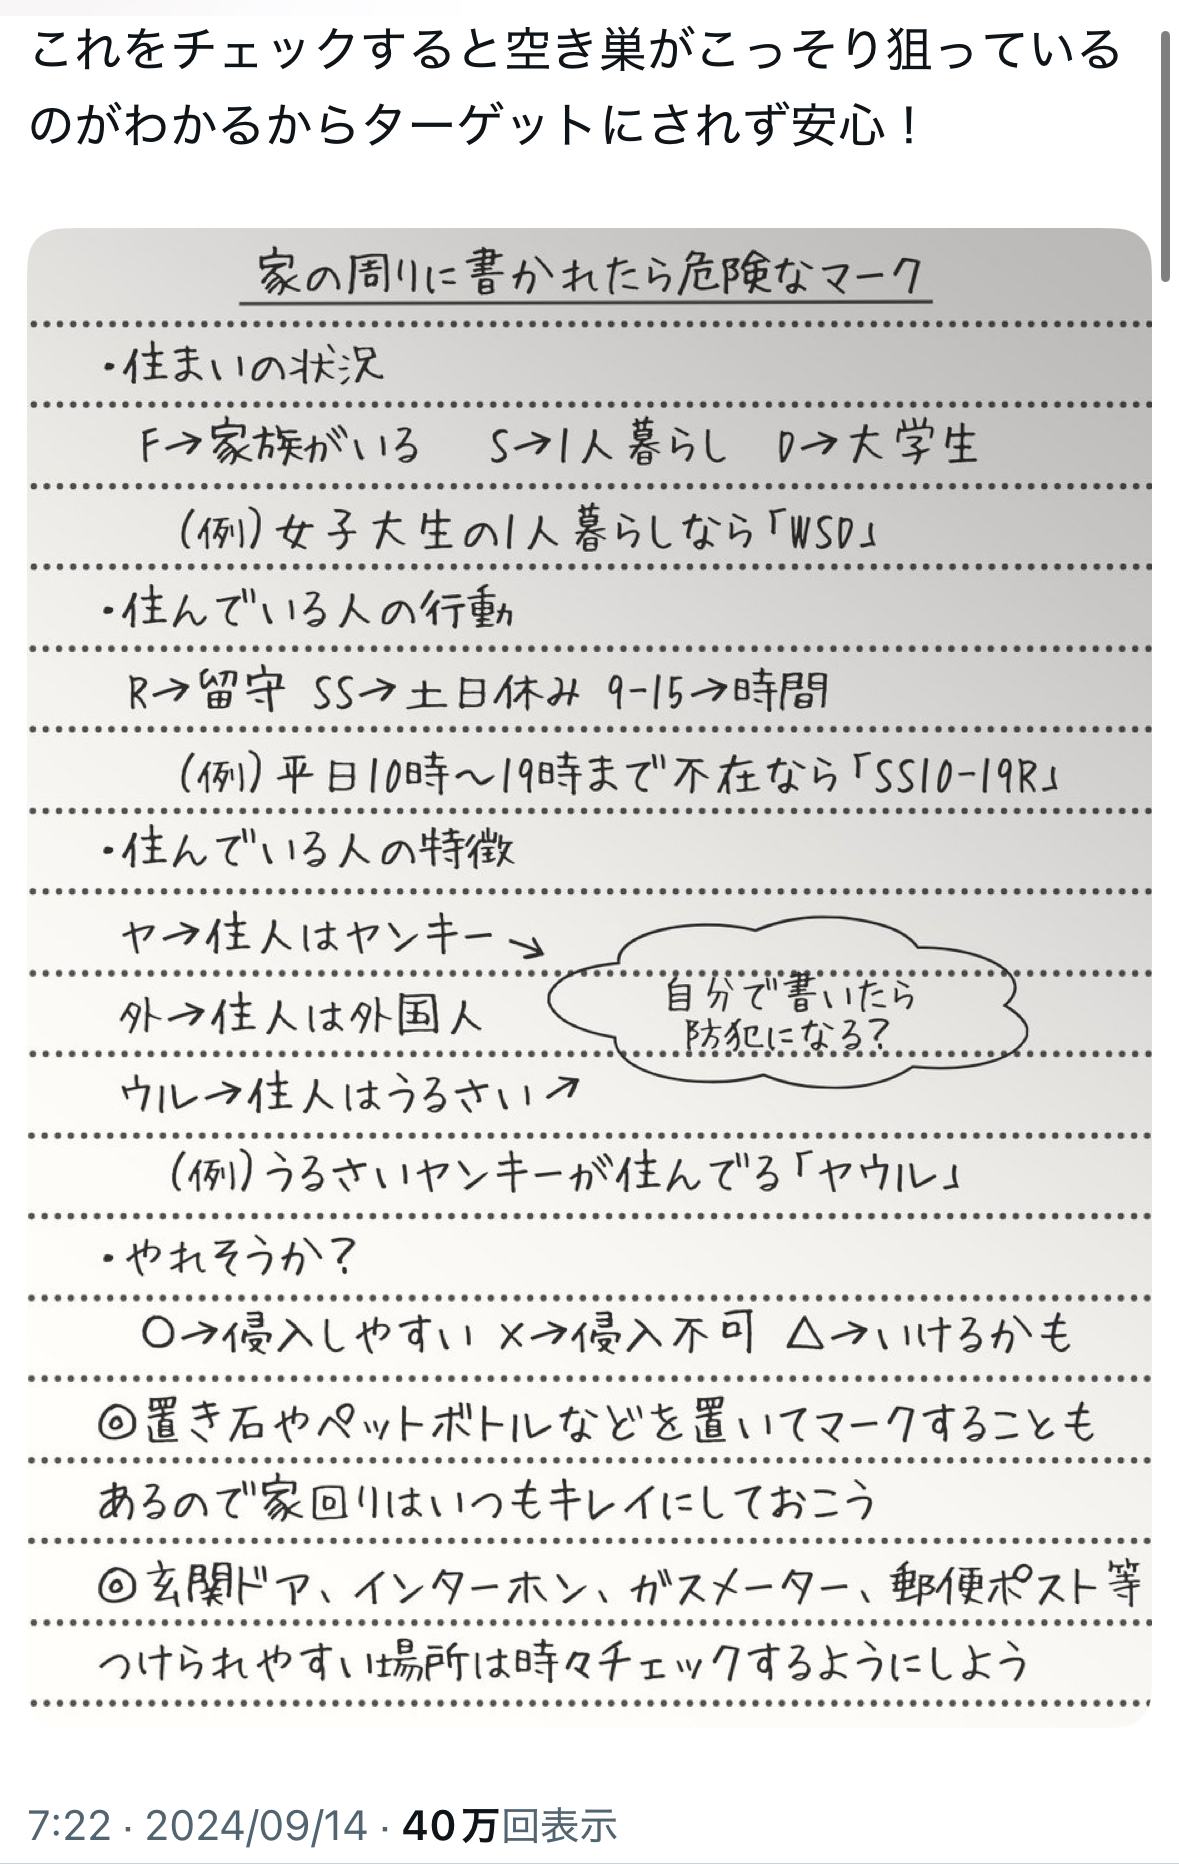 これをチェックすると空き巣がこっそり狙っている
のがわかるからターゲットにされず安心！
家の周りに書かれたら危険なマーク
・住まいの状況
F→家族がいる S→1人暮らし D→大学生
(例)女子大生の1人暮らしなら「WSD」
・住んでいる人の行動
R→留守 SS→土日休み 9-15→時間
(例)平日10時〜19時まで不在なら「SS10-19R」
・住んでいる人の特徴
ヤ→住人はヤンキー↘
自分で書いたら
防犯になる？
外→住人は外国人
ウル→住人はうるさい↗
(例)うるさいヤンキーが住んでる「ヤウル」
・やれそうか？
○→侵入しやすい ×→侵入不可 △→いけるかも
◎置き石やペットボトルなどを置いてマークすることも
あるので家回りはいつもキレイにしておこう
◎玄関ドア、インターホン、ガスメーター、郵便ポスト等
つけられやすい場所は時々チェックするようにしよう
7:22 · 2024/09/14 · 40万回表示